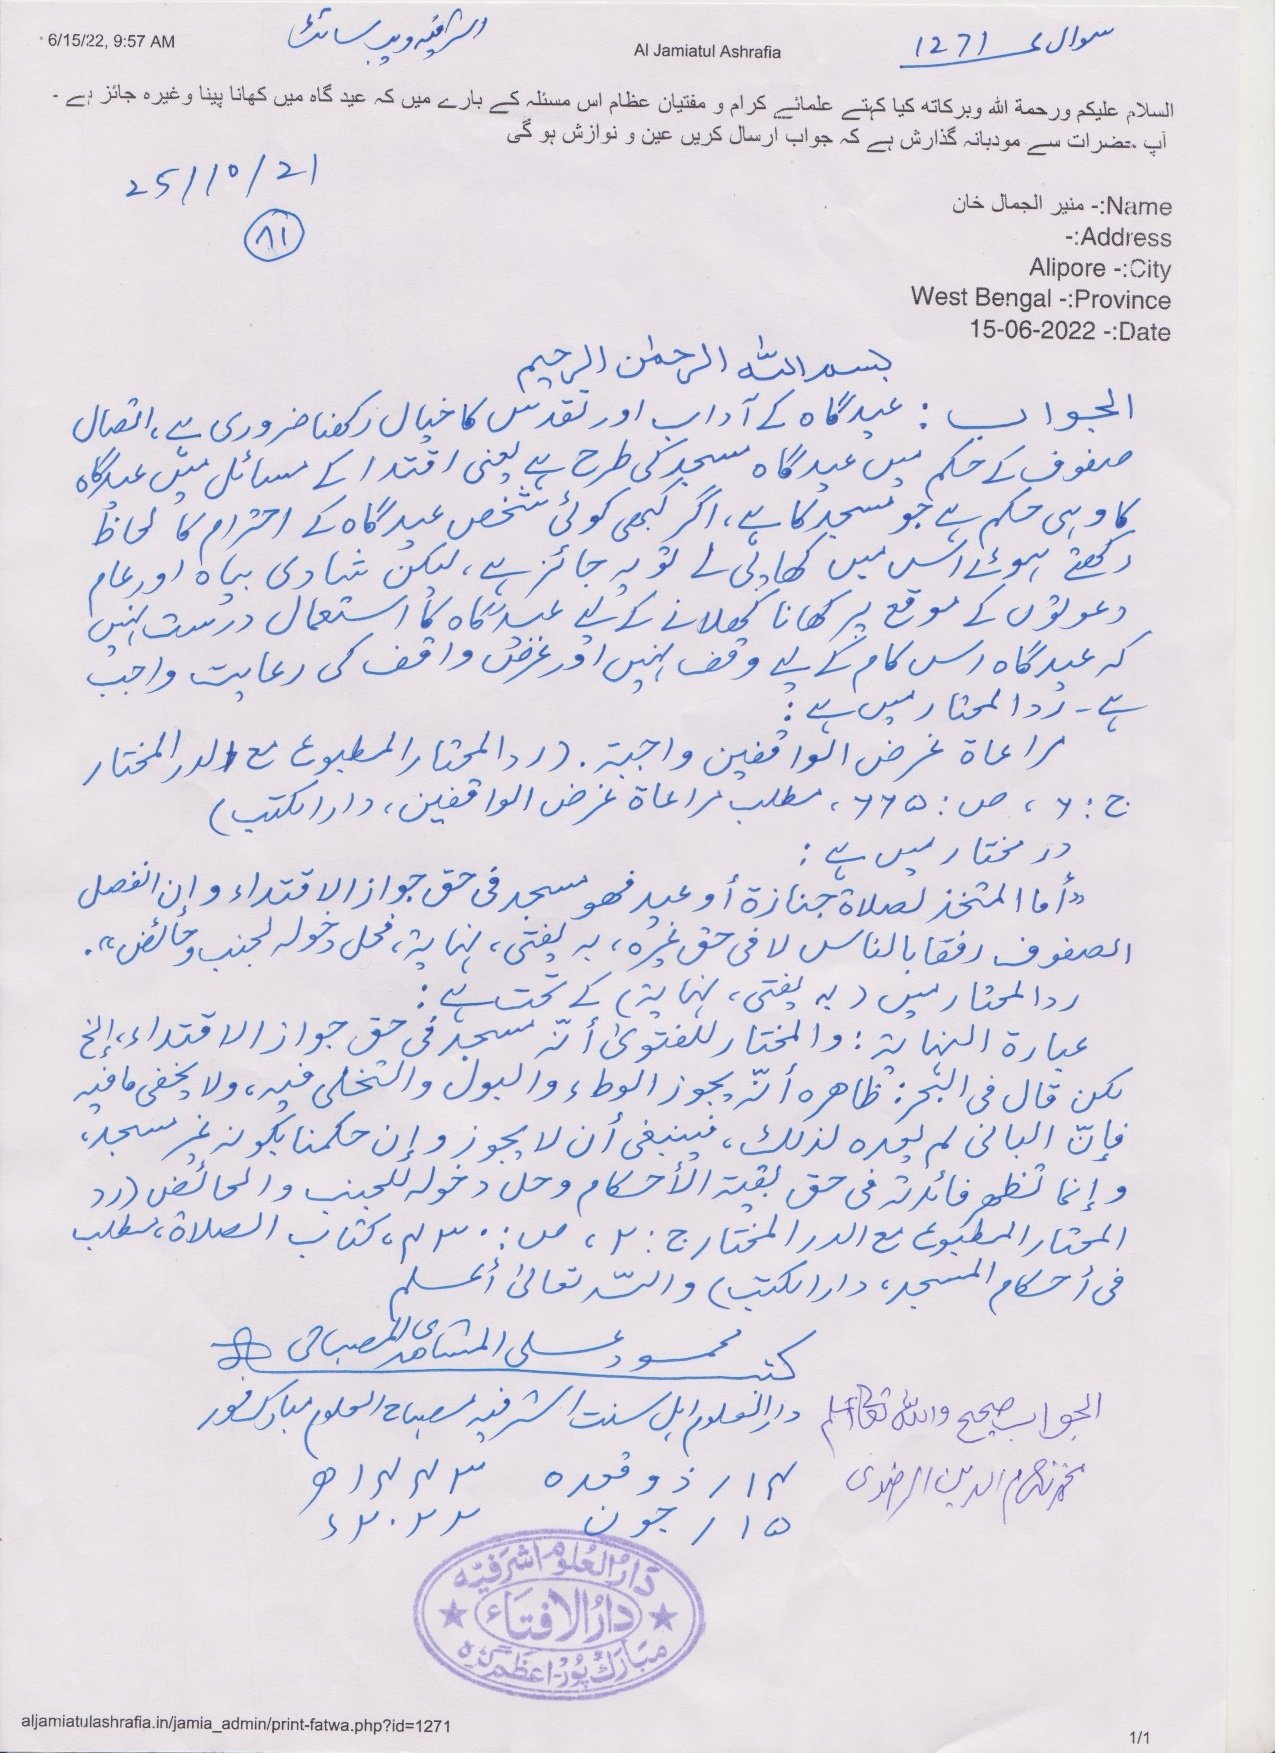 6/15/22, 9:57 AM الشرفیہ ویب سائٹ Al Jamiatul Ashrafia سوال ؎ 1271
السلام علیکم ورحمة الله وبرکاته کیا کہتے علمائے کرام و مفتیان عظام اس مسئلہ کے بارے میں کہ عید گاہ میں کھانا پینا وغیرہ جائز ہے ۔
آپ حضرات سے مودبانہ گذارش ہے کہ جواب ارسال کریں عین و نوازش ہو گی
25/10/21
۸۱
Name:- منیر الجمال خان
Address:-
City:- Alipore
Province:- West Bengal
Date:- 15-06-2022
بسم اللہ الرحمٰن الرحیم
الجواب : عیدگاہ کے آداب اور تقدس کا خیال رکھنا ضروری ہے، اتصال
صفوف کے حکم میں عیدگاہ مسجد کی طرح ہے یعنی اقتدا کے مسائل میں عیدگاہ
کا وہی حکم ہے جو مسجد کا ہے، اگر کبھی کوئی شخص عیدگاہ کے احترام کا لحاظ
رکھتے ہوئے اس میں کھا پی لے تو یہ جائز ہے، لیکن شادی بیاہ اور عام
دعوتوں کے موقع پر کھانا کھلانے کے لیے عیدگاہ کا استعمال درست نہیں
کہ عیدگاہ اس کام کے لیے وقف نہیں اور غرض واقف کی رعایت واجب
ہے ۔ رد المحتار میں ہے :
مراعاة غرض الواقفین واجبة . (رد المحتار المطبوع مع الدر المختار
ج : ۶ ، ص : ۶۶۵ ، مطلب مراعاة غرض الواقفین، دار الکتب)
در مختار میں ہے :
”أما المتخذ لصلاة جنازة أو عید فهو مسجد فی حق جواز الاقتداء وإن انفصل
الصفوف رفقا بالناس لا فی حق غیره، به یفتی، نهایة، فحل دخوله لجنب وحائض“.
رد المحتار میں (به یفتی، نهایة) کے تحت ہے :
عبارة النهایة : والمختار للفتویٰ أنّه مسجد فی حق جواز الاقتداء، إلخ
لکن قال فی البحر : ظاهره أنّه یجوز الوطء والبول والتخلی فیه، ولا یخفی ما فیه
فإنّ البانی لم یعده لذلک، فینبغی أن لا یجوز وإن حکمنا بکونه غیر مسجد،
وإنما تظهر فائدته فی حق بقیة الأحکام وحل دخوله للجنب والحائض (رد
المحتار المطبوع مع الدر المختار ج : ۲ ، ص : ۴۳۰، کتاب الصلاة، مطلب
فی أحکام المسجد، دار الکتب) واللہ تعالیٰ أعلم
کتبـــہ محمود علی المشاھدی المصباحی
دار العلوم اہل سنت اشرفیہ مصباح العلوم مبارک فور
۱۴/ ذو قعدہ ۱۴۴۳ھ
۱۵/ جون ۲۰۲۲ء
الجواب صحیح واللہ تعالیٰ اعلم
محمد نظام الدین الرضوی
دَارُ العُلُوم اَشرَفِیَّه
دَارُ الاِفتَاء
مُبَارَك پُور - اَعظَم گَڑھ
aljamiatulashrafia.in/jamia_admin/print-fatwa.php?id=1271 1/1